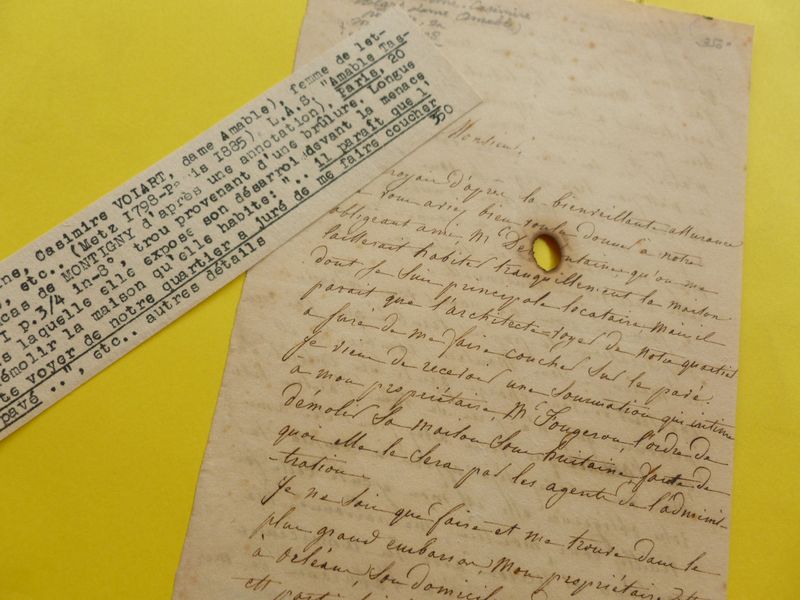 ne, Casimire VOIART, dame Amable), femme de let-
, etc.. (Metz 1798-Pa is 1885) L.A.S. "Amable Tas-
cas de MONTIGNY d'après une annotation), Paris, 20
I p.3/4 in-8, trou provenant d'une brûlure. Longue
s laquelle elle expose son désarroi devant la menace
émolir la maison qu'elle habite: ".. il paraît que l'
te voyer de notre quartier a juré de me faire coucher
pavé ..", etc.. autres détails
350
Casimire
dame Amable)
350
Monsieur,
d'après la bienveillante assurance
vous aviez bien voulu donner à notre
obligeant ami Mr De ntaine qu'on me
laisserait habiter tranquillement la maison
dont je suis principale locataire mais il
parait que l'architecte-voyer de notre quartier
a juré de me faire coucher sur le pavé.
Je viens de recevoir une sommation qui intime
à mon propriétaire, Mr Fougeron, l'ordre de
démolir sa maison sous huitaine, faute de
quoi elle le sera par les agents de l'adminis-
tration.
Je ne sais que faire et me trouve dans le
plus grand embarras. Mon propriétaire
à Orléans, son domicile
est